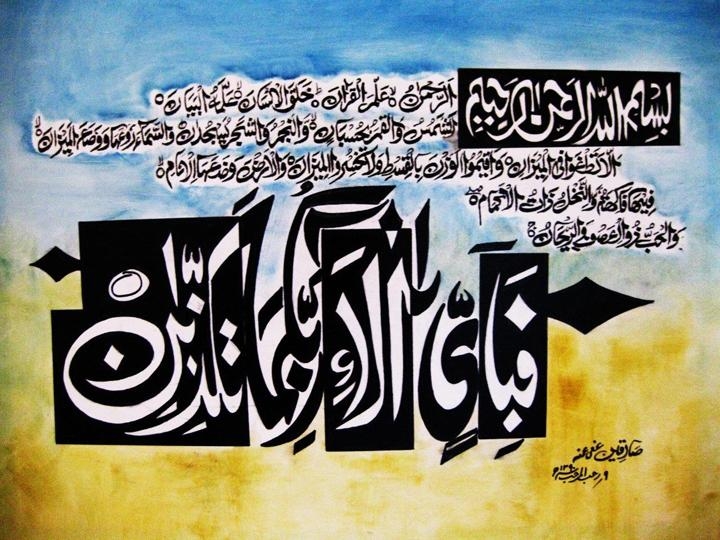 بِسْمِ اللهِ الرَّحْمٰنِ الرَّحِيْمِ
اَلرَّحْمٰنُ عَلَّمَ الْقُرْاٰنَ خَلَقَ الْاِنْسَانَ عَلَّمَهُ الْبَيَانَ
اَلشَّمْسُ وَالْقَمَرُ بِحُسْبَانٍ وَّالنَّجْمُ وَالشَّجَرُ يَسْجُدٰنِ وَالسَّمَآءَ رَفَعَهَا وَوَضَعَ الْمِيْزَانَ
اَلَّا تَطْغَوْا فِى الْمِيْزَانِ وَاَقِيْمُوا الْوَزْنَ بِالْقِسْطِ وَلَا تُخْسِرُوا الْمِيْزَانَ وَالْاَرْضَ وَضَعَهَا لِلْاَنَامِ
فِيْهَا فَاكِهَةٌ وَّالنَّخْلُ ذَاتُ الْاَكْمَامِ
وَالْحَبُّ ذُو الْعَصْفِ وَالرَّيْحَانُ
فَبِاَىِّ اٰلَآءِ رَبِّكُمَا تُكَذِّبٰنِ
صادقین عفی عنه
۹ رجب المرجب